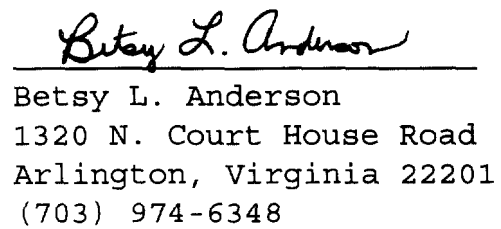 Betsy L. Anderson
Betsy L. Anderson
1320 N. Court House Road
Arlington, Virginia 22201
(703) 974-6348